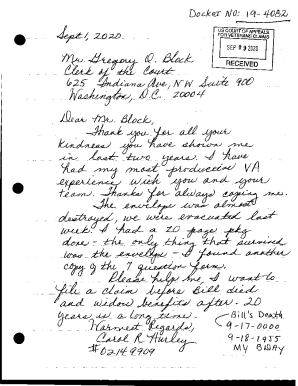 Docker No: 19-4082
Sept 1, 2020.
US COURT OF APPEALS
FOR VETERANS CLAIMS
SEP 09 2020
RECEIVED
Mr. Gregory O. Block
Clerk of the Court
625 Indiana Ave, NW Suite 900
Washington, D.C. 20004
Dear Mr. Block,
Thank you for all your
kindness you have shown me
in last two years. I have
had my most productive VA
experience with you and your
team. Thanks for always coping me.
The envelope was almost
destroyed, we were evacuated last
week. I had a 20 page pkg
done - the only thing that survived
was the envelope - I found another
copy of the 7 question form.
Please help me, I want to
file a claim before Bill died
and widow benefits after. 20
years is a long time.
Warmest Regards,
Carol R Hurley
#02149909
Bill's Death
9-17-0000
9-18-1955
My BDAY